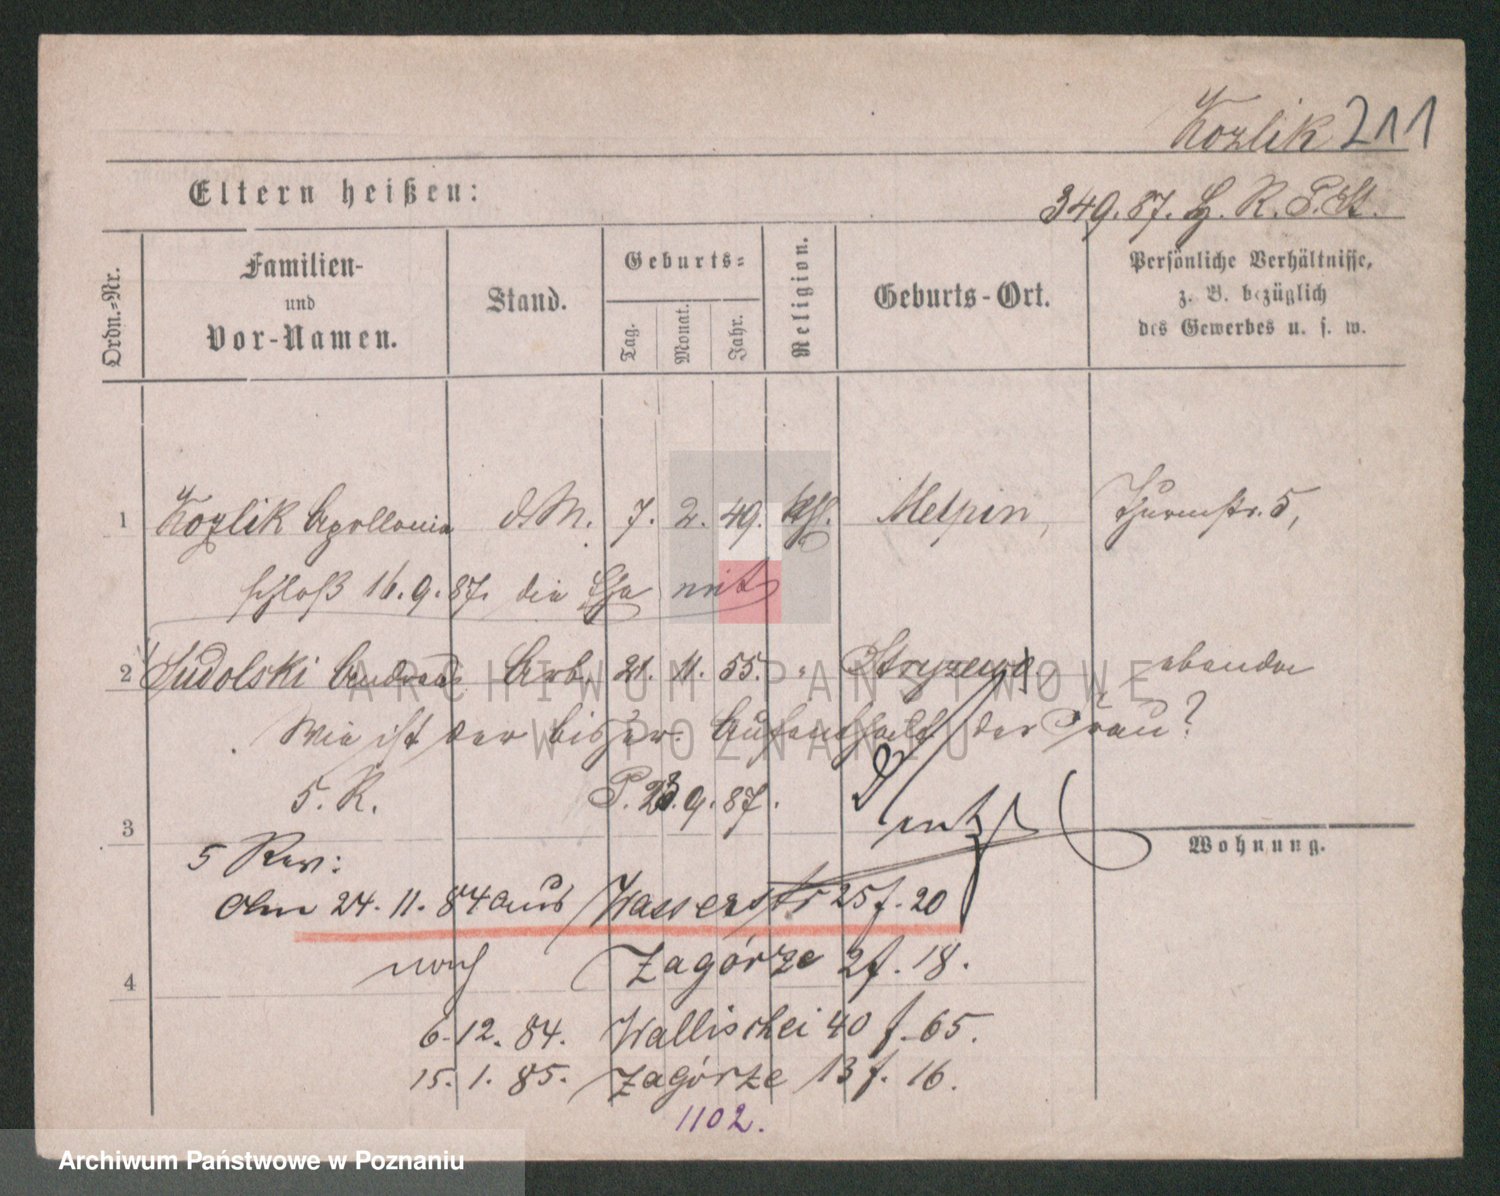 Kozlik 211
Eltern heißen:
349. 87. R. P. St.
Ordn.-Nr.
Familien-
und
Vor-Namen.
Stand.
Geburts-
Tag.
Monat.
Jahr.
Religion.
Geburts-Ort.
Persönliche Verhältnisse,
z. B. bezüglich
des Gewerbes u. s. w.
1 Kozlik Apollonia d. M. 7. 2. 49. kth. Melpin, Thurmstr. 5,
schloß 16. 9. 87. die Ehe mit
2 Sudolski Andreas Arb. 21. 11. 55. " Stryzewo. ebenda
Wie ist der bisher. Aufenthalt der Frau?
5. R. P. 23. 9. 87.
3
Wohnung.
5 Rev:
Am 24. 11. 84 aus Wasserstr 25 f. 20
nach Zagórze 2 f. 18.
4
6. 12. 84. Wallischei 40 f. 65.
15. 1. 85. Zagórze 13 f. 16.
1102.
ARCHIWUM PAŃSTWOWE
W POZNANIU
Archiwum Państwowe w Poznaniu